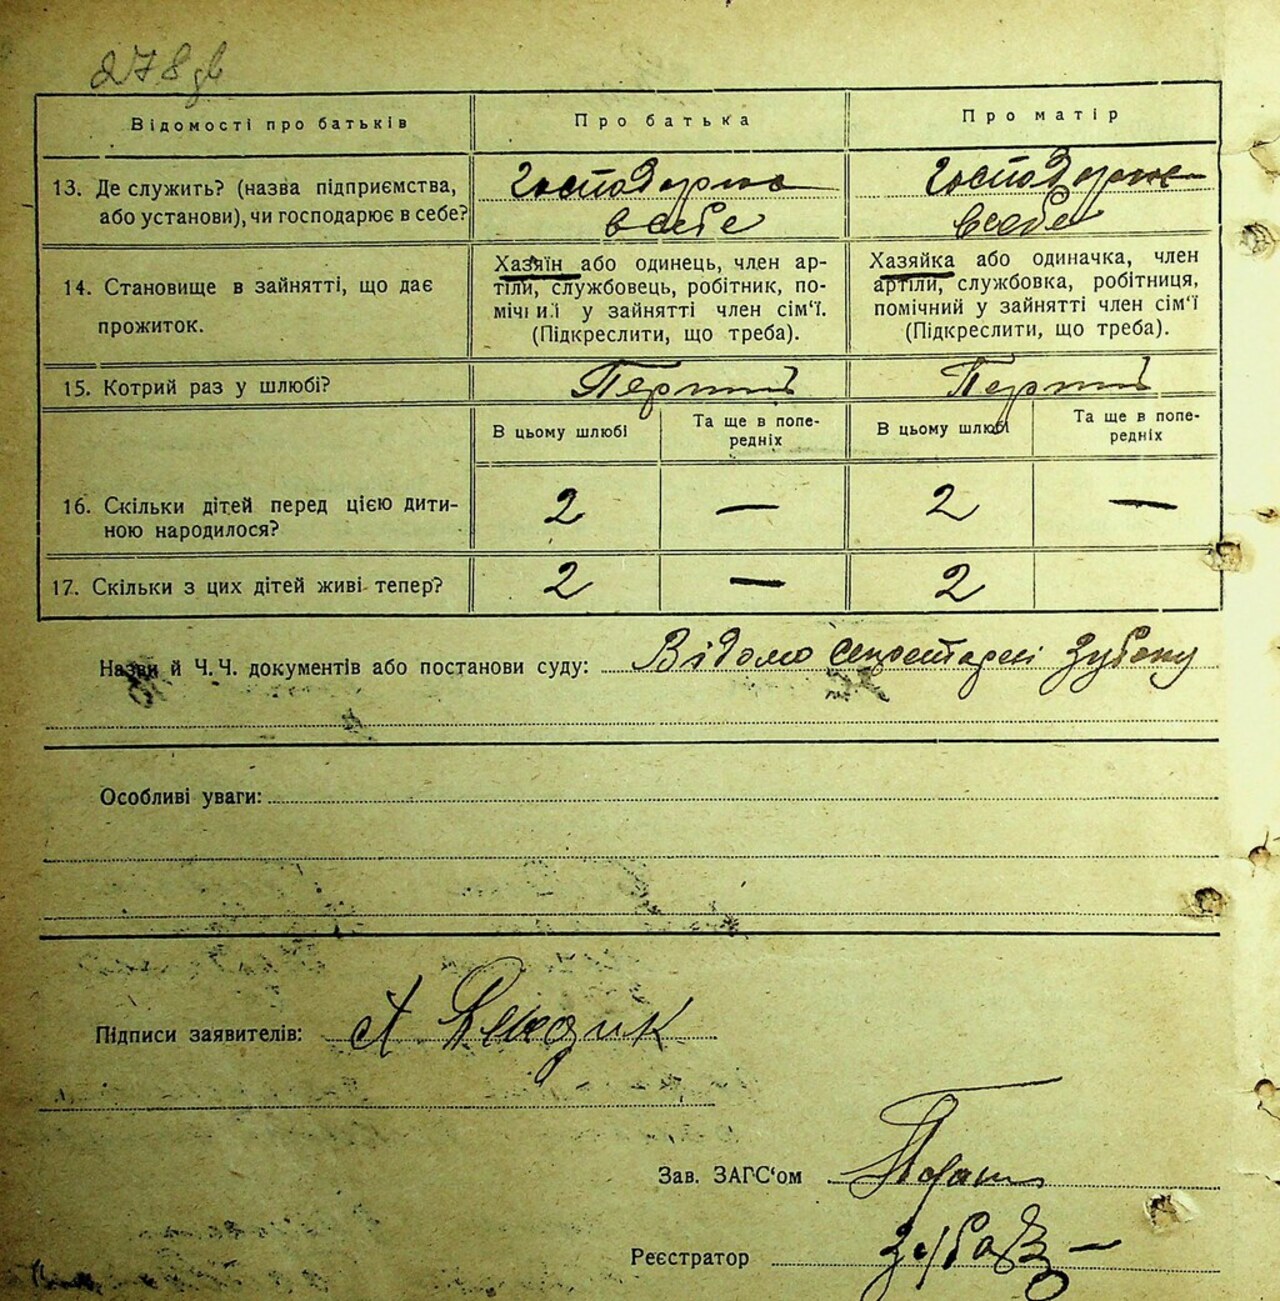 278
Відомості про батьків
Про батька
Про матір
13. Де служить? (назва підприємства,
або установи), чи господарює в себе?
Господарює
в себе
Господарює
в себе
14. Становище в зайнятті, що дає
прожиток.
Хазяїн або одинець, член ар-
тіли, службовець, робітник, по-
мічний у зайнятті член сім'ї.
(Підкреслити, що треба).
Хазяйка або одиначка, член
артіли, службовка, робітниця,
помічний у зайнятті член сім'ї
(Підкреслити, що треба).
15. Котрий раз у шлюбі?
Перший
Перший
В цьому шлюбі
Та ще в попе-
редніх
В цьому шлюбі
Та ще в попе-
редніх
16. Скільки дітей перед цією дити-
ною народилося?
2 — 2 —
17. Скільки з цих дітей живі тепер?
2 — 2
Назви й Ч.Ч. документів або постанови суду: Відомо секретареві
Особливі уваги:
Підписи заявителів: А
Зав. ЗАГС'ом
Реєстратор